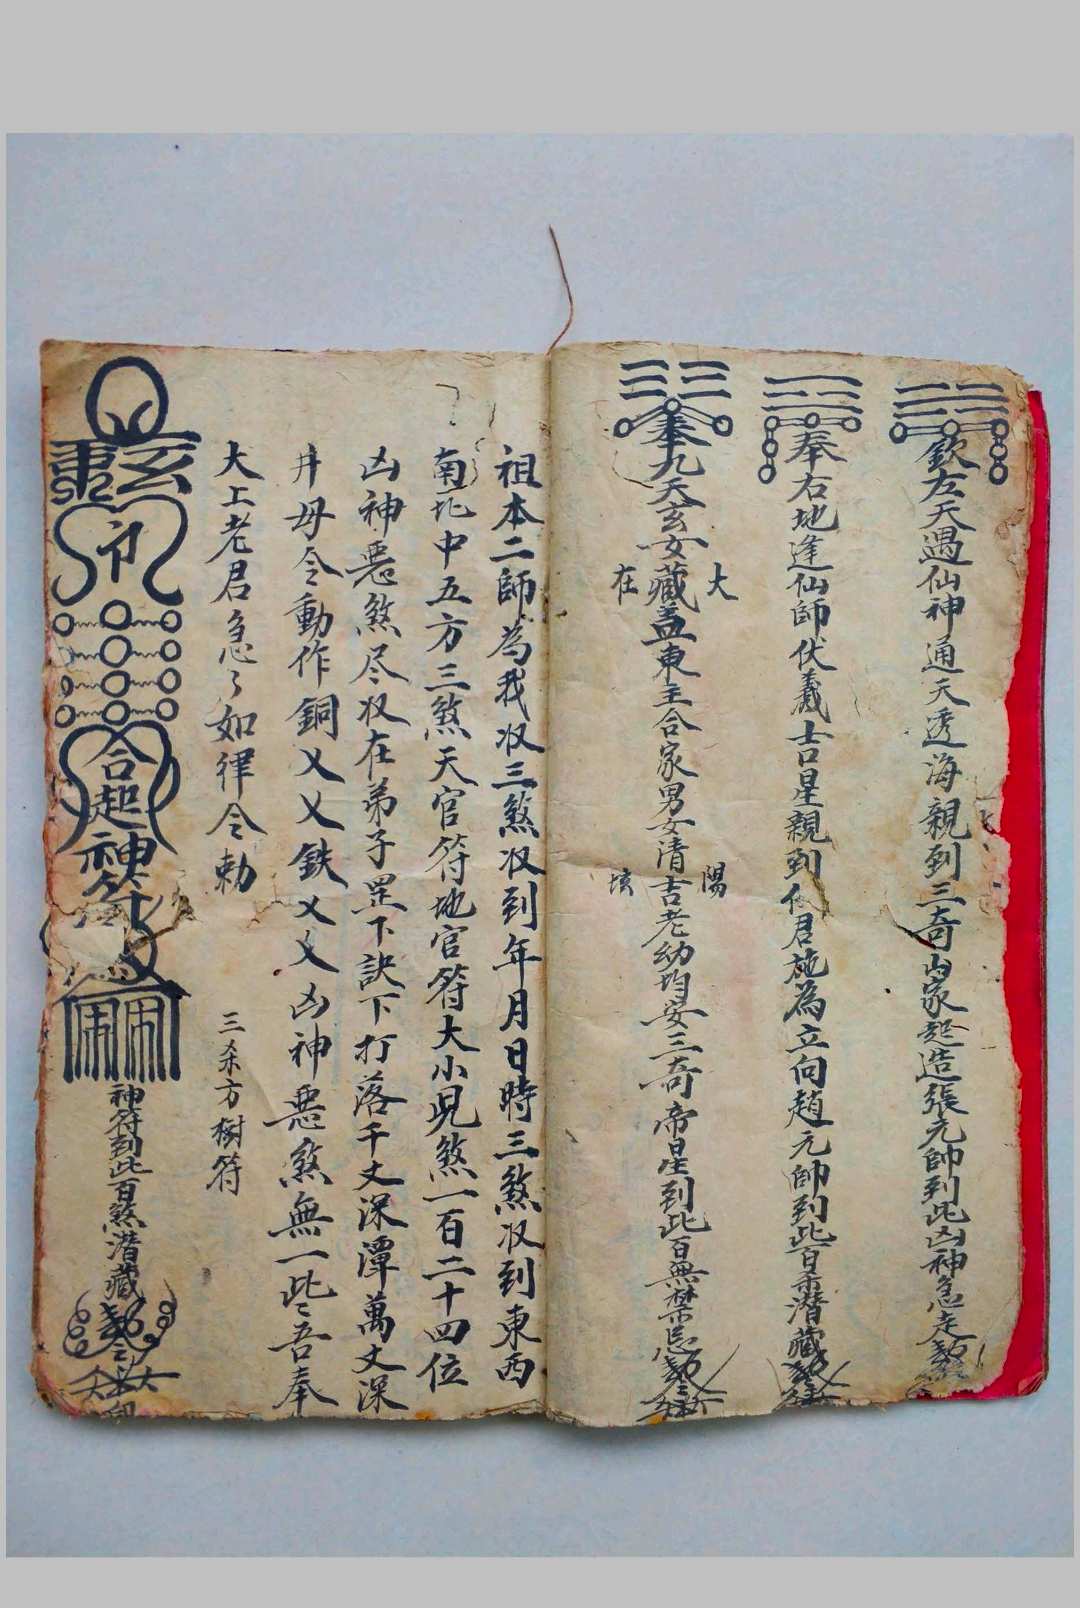 欽左天遇仙神通天透海親到三奇山家起造張元帥到此凶神急走
奉右地逢仙師伏羲吉星親到修君施為立向趙元帥到此百煞潜藏
大陽
奉九天玄女藏盖東主合家男女清吉老幼均安三奇帝星到此百無禁忌
在
祖本二師為我収三煞収到年月日時三煞収到東西
南北中五方三煞天官符地官符大小児煞一百二十四位
凶神悪煞尽収在弟子罡下訣下打落千丈深潭萬丈深
井毋令動作銅乂乂鉄乂乂凶神悪煞無一此〻吾奉
大上老君急〻如律令勅
三杀方樹符
玄
合起神符
神符到此百煞潜藏